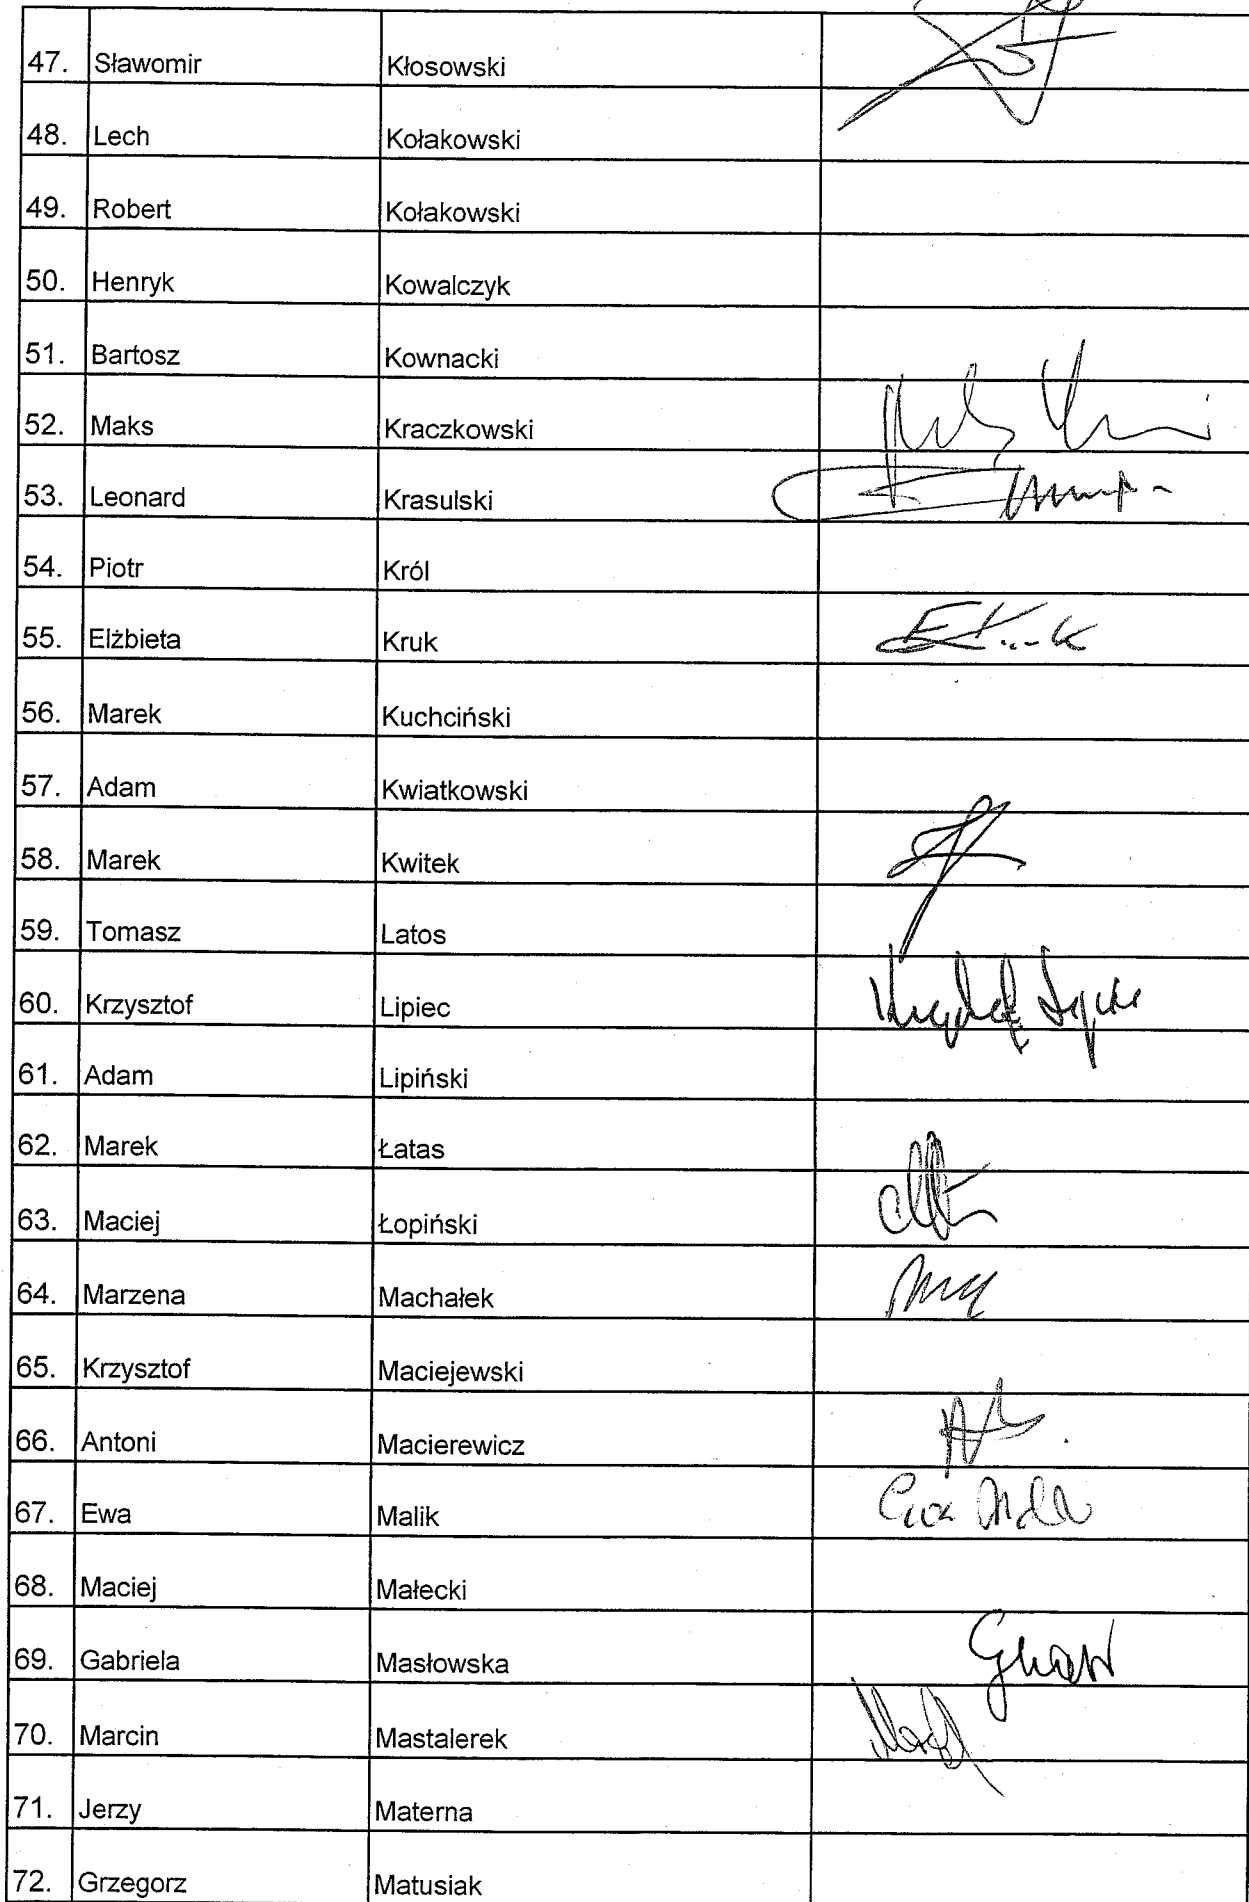 47. Sławomir Kłosowski
48. Lech Kołakowski
49. Robert Kołakowski
50. Henryk Kowalczyk
51. Bartosz Kownacki
52. Maks Kraczkowski
53. Leonard Krasulski
54. Piotr Król
55. Elżbieta Kruk
56. Marek Kuchciński
57. Adam Kwiatkowski
58. Marek Kwitek
59. Tomasz Latos
60. Krzysztof Lipiec
61. Adam Lipiński
62. Marek Łatas
63. Maciej Łopiński
64. Marzena Machałek
65. Krzysztof Maciejewski
66. Antoni Macierewicz
67. Ewa Malik
68. Maciej Małecki
69. Gabriela Masłowska
70. Marcin Mastalerek
71. Jerzy Materna
72. Grzegorz Matusiak